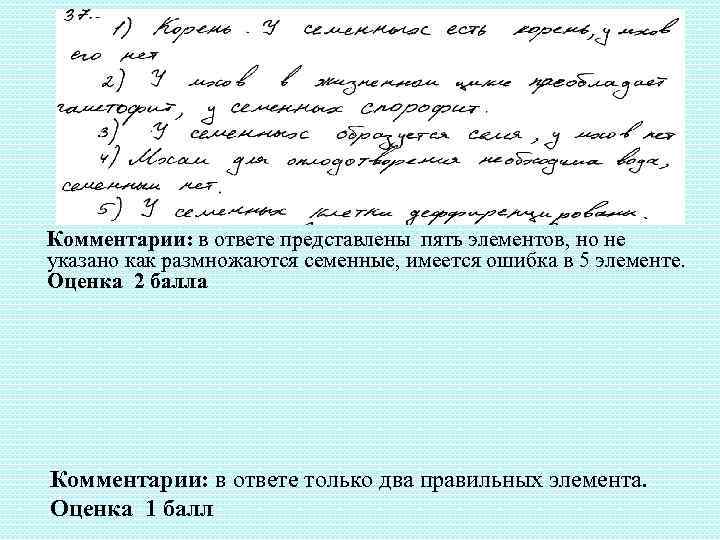 37..
1) Корень. У семенных есть корень, у мхов
его нет
2) У мхов в жизненном цикле преобладает
гаметофит, у семенных спорофит.
3) У семенных образуется семя, у мхов нет
4) Мхам для оплодотворения необходима вода,
семенным нет.
5) У семенных клетки деффиренцированы.
Комментарии: в ответе представлены пять элементов, но не
указано как размножаются семенные, имеется ошибка в 5 элементе.
Оценка 2 балла
Комментарии: в ответе только два правильных элемента.
Оценка 1 балл